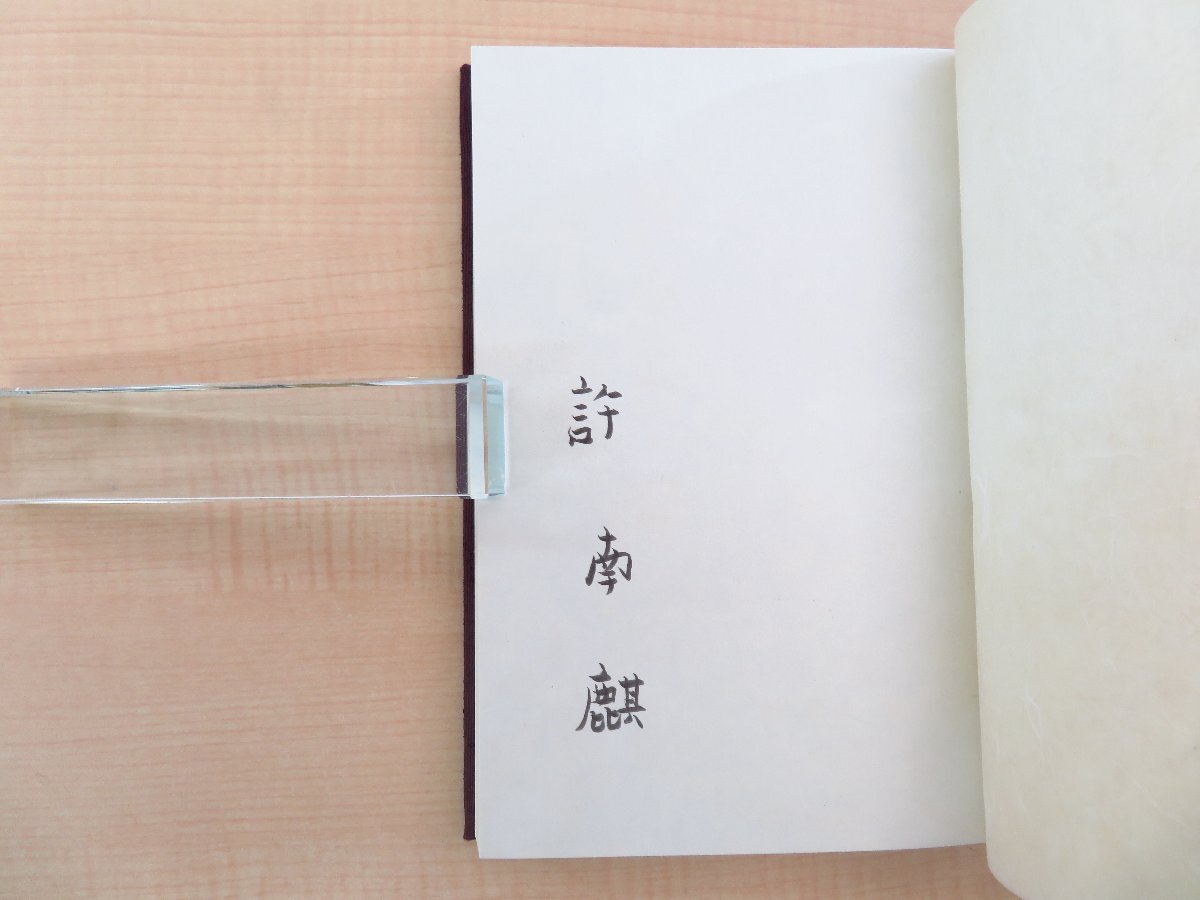 許南麒